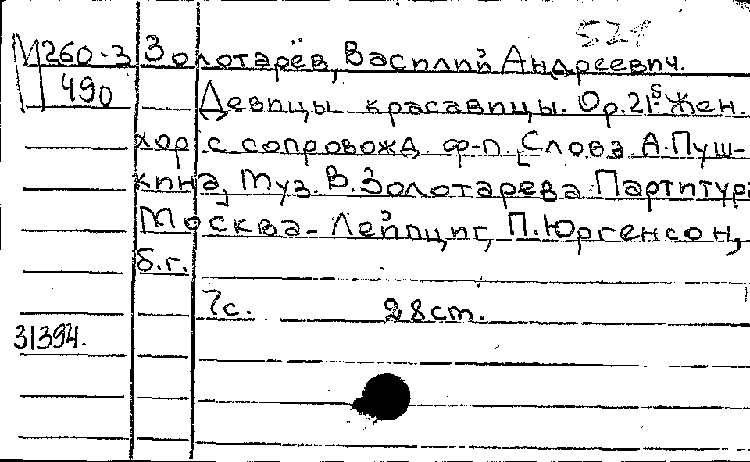 521
М260-3 Золотарёв, Василий Андреевич.
490 Девицы красавицы. Op. 21⁵ Жен.
хор с сопровожд. ф-п. [Слова А. Пуш-
кина, Муз. В. Золотарева. Партитура
Москва-Лейпциг, П. Юргенсон,
б.г.
7с. 28ст.
31394.